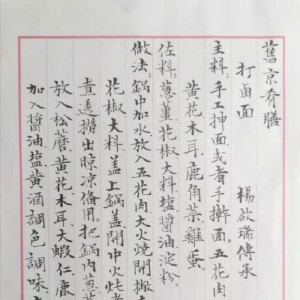 舊京肴膳
打卤面 楊啟瑞傳承
主料：手工抻面，或者手擀面。五花肉
黄花木耳、鹿角菜、雞蛋、
佐料：蔥薑、花椒大料、塩醬油、淀粉、
做法：鍋中加水放入五花肉大火燒開撇
花椒大料蓋上鍋蓋開中火炖
煮透撈出晾凉備用。把鍋内蔥
放入松蘑黄花木耳大蝦仁鹿
加入醬油塩黄酒調色調味